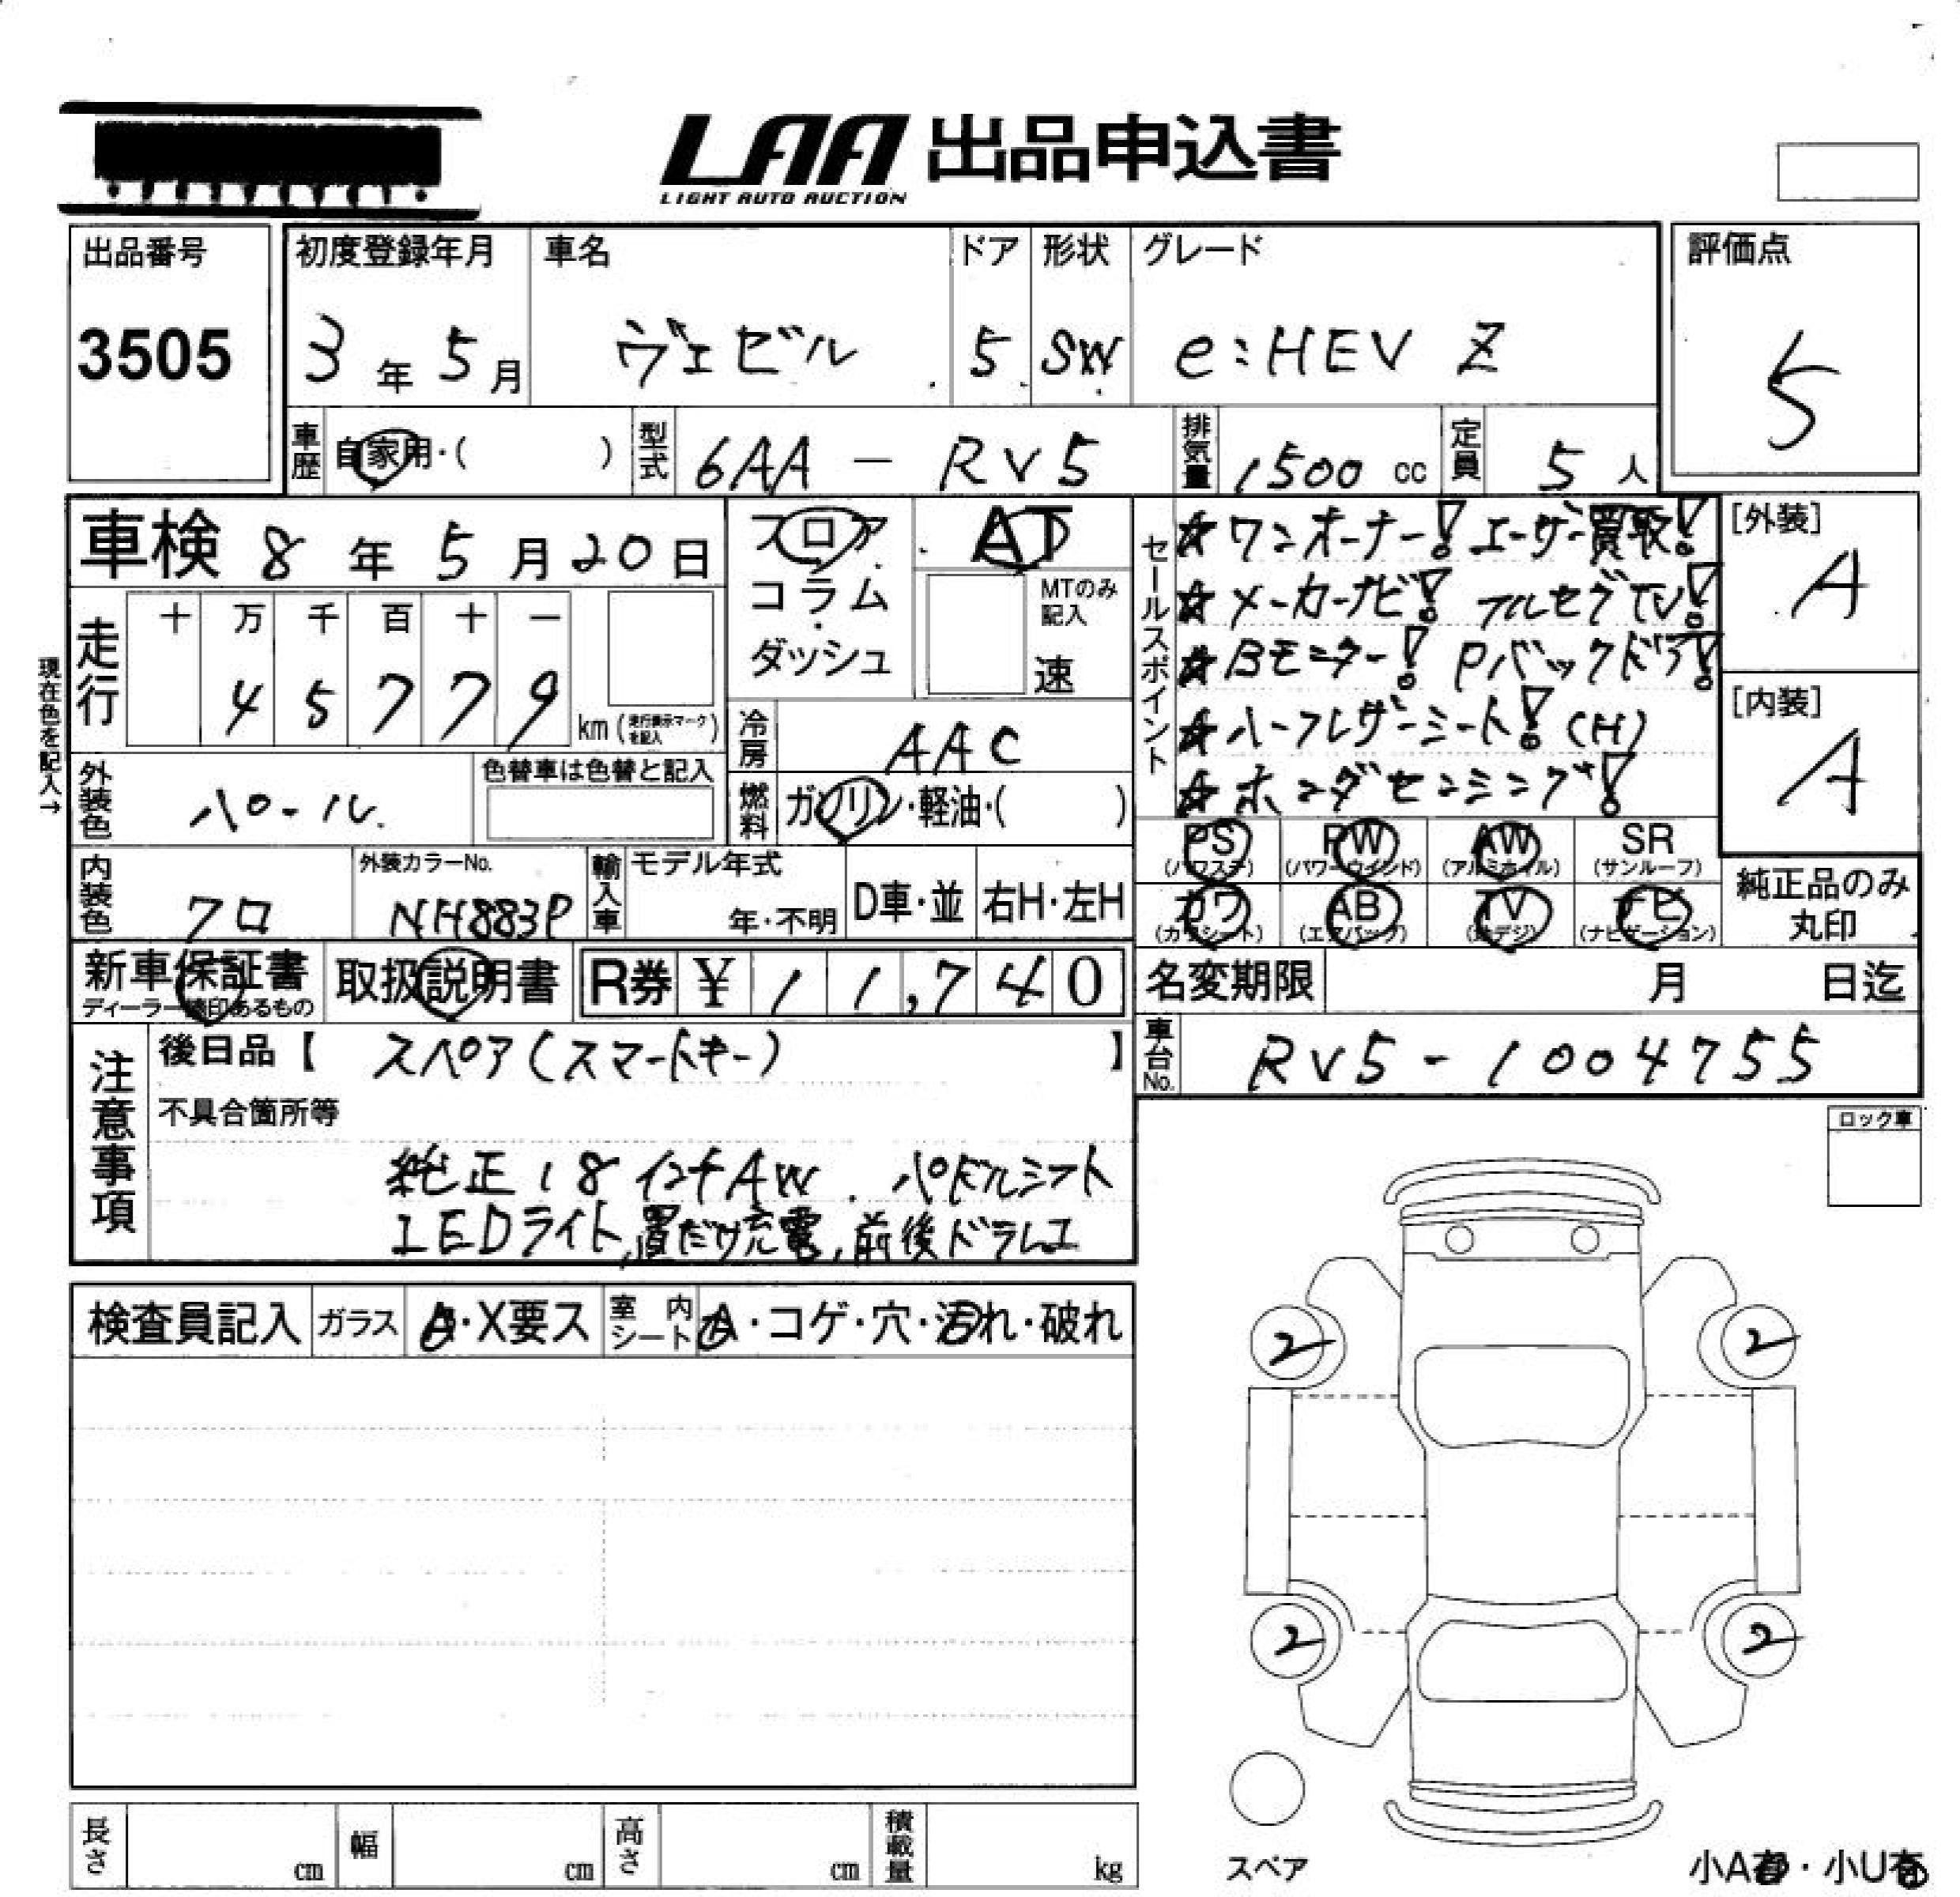 LAA 出品申込書
LIGHT AUTO AUCTION
出品番号 3505
初度登録年月 3年5月
車名 ヴェゼル
ドア 5
形状 SW
グレード e:HEV Z
評価点 5
車歴 自家用・( )
型式 6AA - RV5
排気量 1500 cc
定員 5 人
車検 8年5月20日
フロア
コラム
ダッシュ
AT
MTのみ記入
速
セールスポイント
☆ワンオーナー! ユーザー買取!
☆メーカーナビ! フルセグTV!
☆Bモニター! Pバックドア!
☆ハーフレザーシート! (H)
☆ホンダセンシング!
[外装] A
[内装] A
現在色を記入→
走行 十 万 千 百 十 一
4 5 7 7 9 km (走行表示マークを記入)
冷房 AAC
燃料 ガソリン・軽油・( )
外装色 パール
色替車は色替と記入
内装色 クロ
外装カラーNo. NH883P
輸入車 モデル年式 年・不明
D車・並 右H・左H
PS (パワステ) PW (パワーウインド) AW (アルミホイル) SR (サンルーフ)
カワ (カワシート) AB (エアバッグ) TV (地デジ) ナビ (ナビゲーション)
純正品のみ丸印
新車保証書
ディーラー捺印あるもの
取扱説明書
R券 ¥11,740
名変期限 月 日迄
車台No. RV5-1004755
注意事項
後日品【 スペア(スマートキー) 】
不具合箇所等
純正18インチAW. パドルシフト
LEDライト,置だけ充電,前後ドラレコ
ロック車
検査員記入 ガラス A・X要ス 室内シート A・コゲ・穴・汚れ・破れ
2 2
2 2
スペア
長さ cm 幅 cm 高さ cm 積載量 kg
小A有・小U有